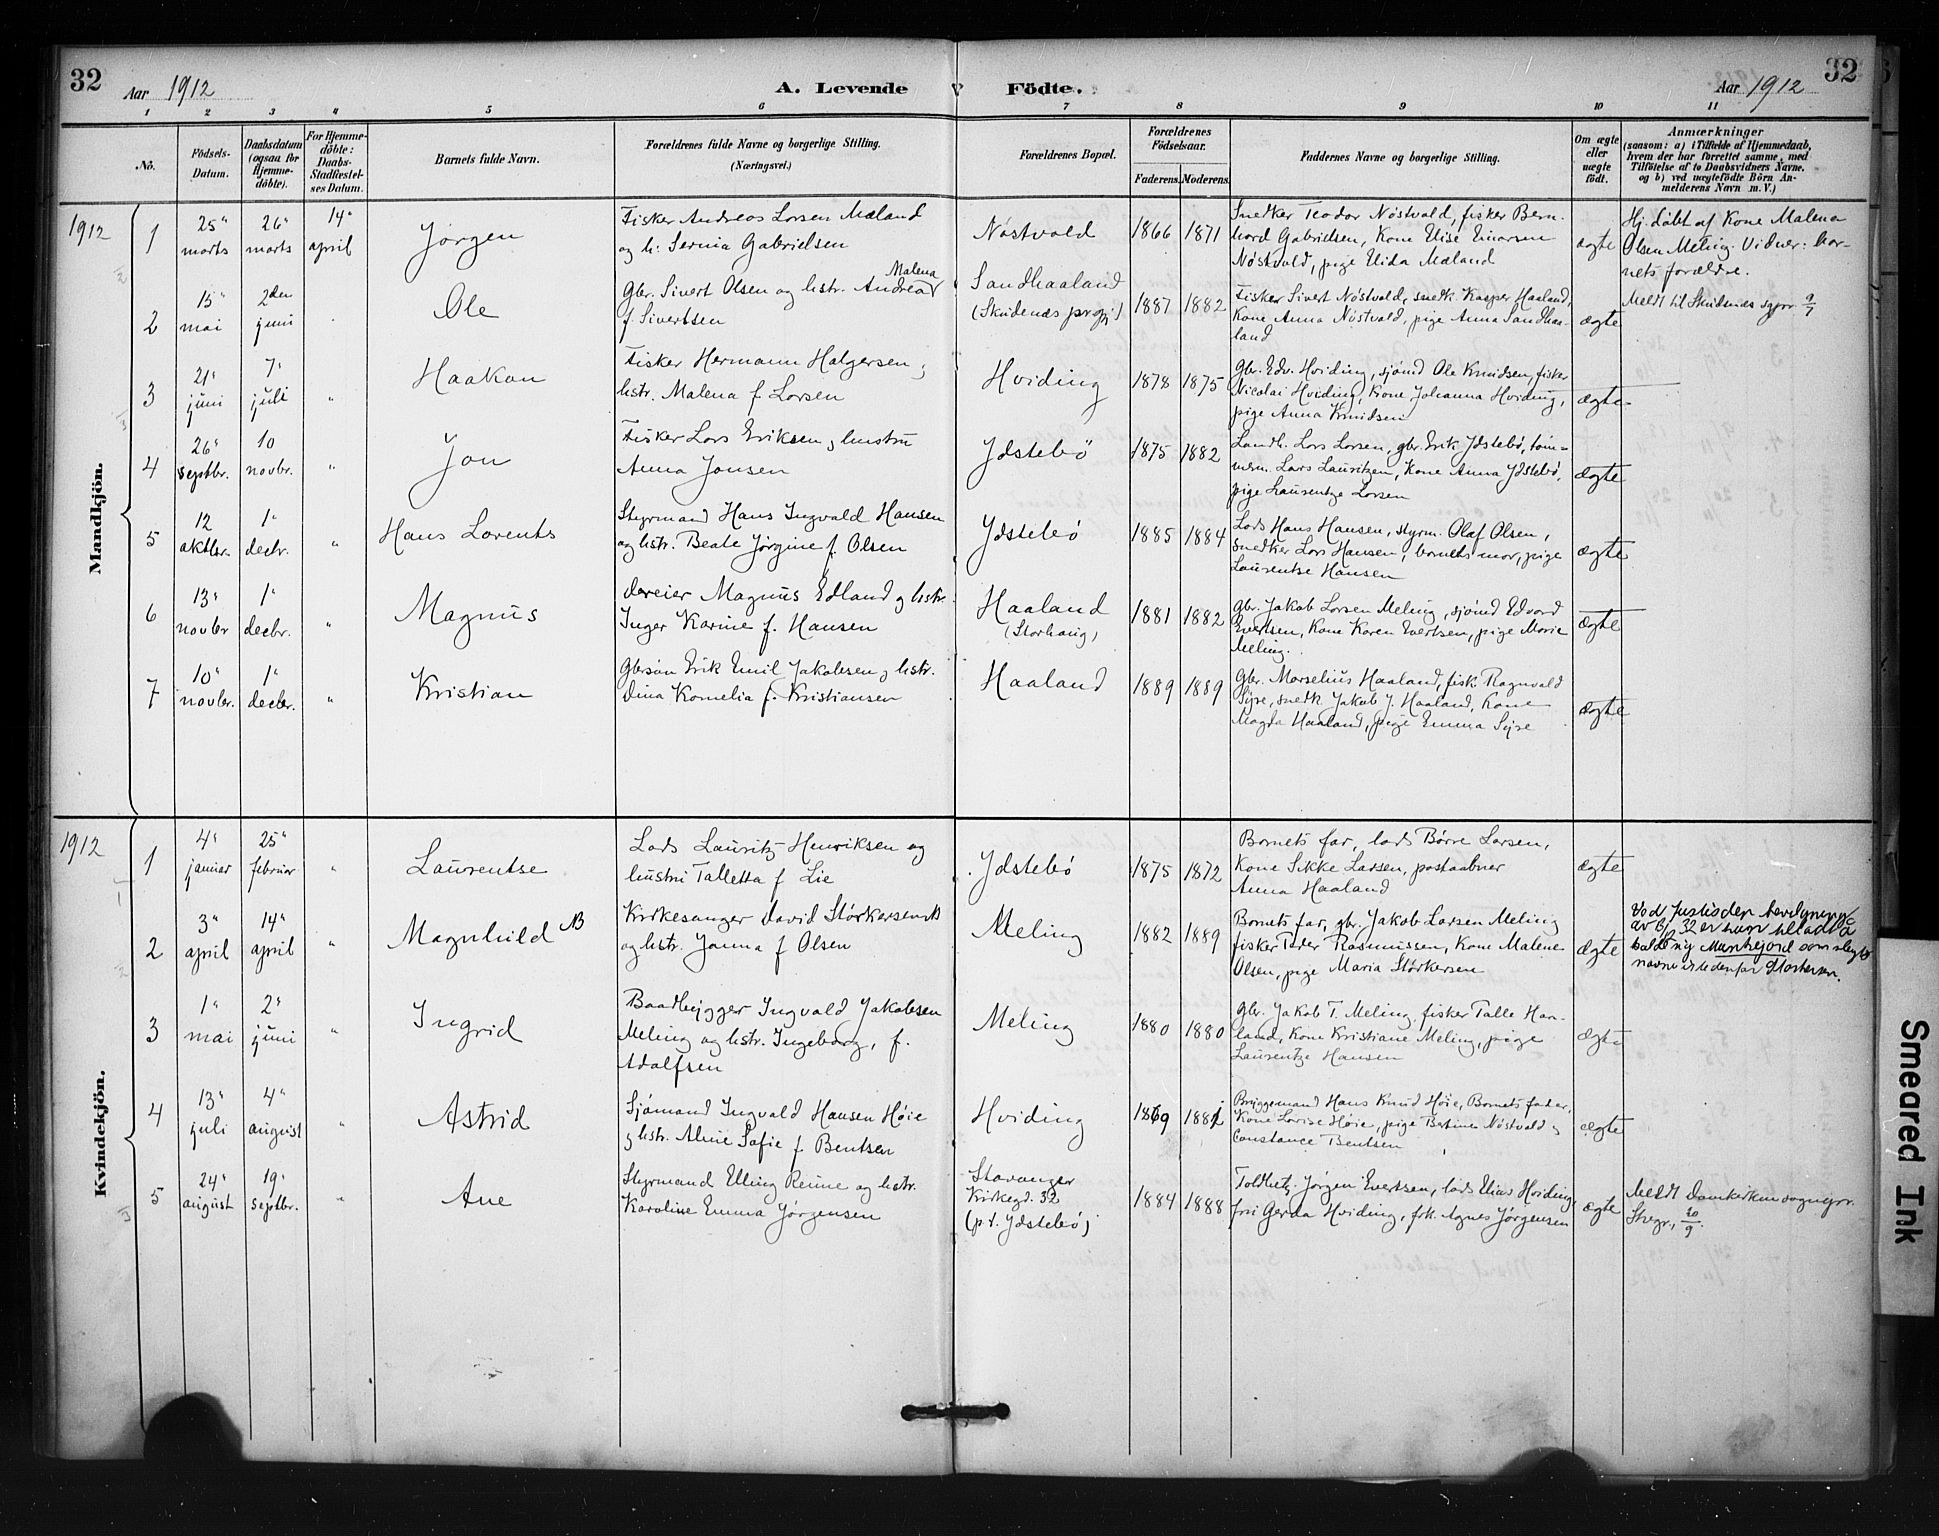 32
Aar 1912
A. Levende
Födte.
32
Aar 1912
1 2 3 4 5 6 7 8 9 10 11
No.
Födsels-
Datum.
Daabsdatum
(ogsaa för
Hjemme-
döbte).
For Hjemme-
döbte:
Daabs-
Stadfæstel-
ses Datum.
Barnets fulde Navn.
Forældrenes fulde Navne og borgerlige Stilling.
(Næringsvei.)
Forældrenes Bopæl.
Forældrenes
Födselsaar.
Faderens. Moderens.
Faddernes Navne og borgerlige Stilling.
Om ægte
eller
uægte
födt.
Anmærkninger
(saasom: a) i Tilfælde af Hjemmedaab,
hvem der har forrettet samme, med
Tilföielse af to Daabsvidners Navne,
og b) ved uægtefödte Börn An-
melderens Navn m. V.)
Mandkjön.
1912
1
25"
marts
26"
marts
14"
april
Jørgen
Fisker Andreas Larsen Mæland
og h. Serina Gabrielsen
Nøstvold
1866 1871
Snedker Teodor Nøstvold, fisker Bern-
hard Gabrielsen, Kone Elise Einarsen
Nøstvold, pige Elida Mæland
ægte
Hj. døbt af Kone Malena
Olsen Meling. Vidner: bar-
nets forældre.
2
15"
mai
2den
juni
Ole
Malena
Gbr. Sivert Olsen og hstr. Andrea
f. Sivertsen
Sandhaaland
(Skudenes prgj)
1887 1882
Fisker Sivert Nøstvold, snedk. Kasper Haaland,
Kone Anna Nøstvold, pige Anna Sandhaa-
land
ægte
Meldt til Skudenes sgpr. 9/7
3
21"
juni
7"
juli
"
Haakon
Fisker Hermann Halgersen og
hstr. Malena f. Larsen
Hviding
1878 1875
Gbr. Edv. Hviding, sjømd Ole Knudsen, fisker
Nicolai Hviding, Kone Johanna Hviding,
pige Anna Knudsen
ægte
4
26"
septbr.
10
novbr.
"
Jon
Fisker Lars Eriksen og hustru
Anna Jonsen
Ydstebø
1875 1882
Landh. Lars Larsen, gbr. Erik Ydstebø, töm-
merm. Lars Lauritzen, Kone Anna Ydstebø,
pige Laurentze Larsen
ægte
5
12
oktbr.
1"
decbr.
"
Hans Lorents
Styrmand Hans Ingvald Hansen
og hstr. Beate Jørgine f. Olsen
Ydstebø
1885 1884
Lods Hans Hansen, styrm. Olaf Olsen,
snedker Lars Hansen, barnets mor, pige
Laurentse Hansen
ægte
6
13"
novbr
1"
decbr.
"
Magnus
Dreier Magnus Edland og hstr.
Inger Karine f. Hansen
Haaland
(Storhaug)
1881 1882
Gbr. Jakob Larsen Meling, sjömd Edvard
Evertsen, Kone Karen Evertsen, pige Marie
Meling.
ægte
7
10"
novbr.
1"
decbr.
"
Kristian
Gbrsøn Erik Emil Jakobsen og hstr.
Dina Kornelia f. Kristiansen
Haaland
1889 1889
Gbr. Marselius Haaland, fisk. Ragnvald
Syre, snedk. Jakob J. Haaland, Kone
Magda Haaland, pige Emma Syre
ægte
Kvindekjön.
1912
1
4"
januar
25"
februar
"
Laurentse
Lods Lauritz Henriksen og
hustru Talletta f. Lie
Ydstebø
1875 1872
Barnets far, lods Børre Larsen,
Kone Sikke Larsen, postaabner
Anna Haaland
ægte
2
3"
april
14"
april
"
Magnhild NB
Kirkesanger David Størkersen NB
og hstr. Janna f. Olsen
Meling
1882 1889
Barnets far, gbr. Jakob Larsen Meling
fisker Peder Rasmussen, Kone Malene
Olsen, pige Maria Størkersen
ægte
Ved Justisdep. bevilgning
av 32 er hun tilladt å
kalde sig Munkejord som slegts
navn istedenfor Størkersen.
3
1"
mai
2"
juni
"
Ingrid
Baadbygger Ingvald Jakobsen
Meling og hstr. Ingeborg, f.
Adolfsen
Meling
1880 1880
Gbr. Jakob T. Meling, fisker Talle Haa-
land, Kone Kristiane Meling, pige
Laurentze Hansen
ægte
4
13"
juli
4"
august
"
Astrid
Sjömand Ingvald Hansen Høie
og hstr. Aline Sofie f. Bentsen
Hviding
1869 1881
Bryggemand Hans Knud Høie, Barnets fader,
Kone Lovise Høie, pige Bertine Nøstvold og
Constance Bentsen
ægte
5
24"
august
19"
septbr.
"
Ane
Styrmand Elling Reime og hstr.
Karoline Emma Jørgensen
Stavanger
Kirkegd. 32
(p.t. Ydstebø)
1884 1888
Toldbetj. Jørgen Evertsen, lods Elias Hviding,
fru Gerda Hviding, frk. Agnes Jørgensen
ægte
Meldt Domkirkens sognepr.
Stvgr, 20/9.
Smeared Ink